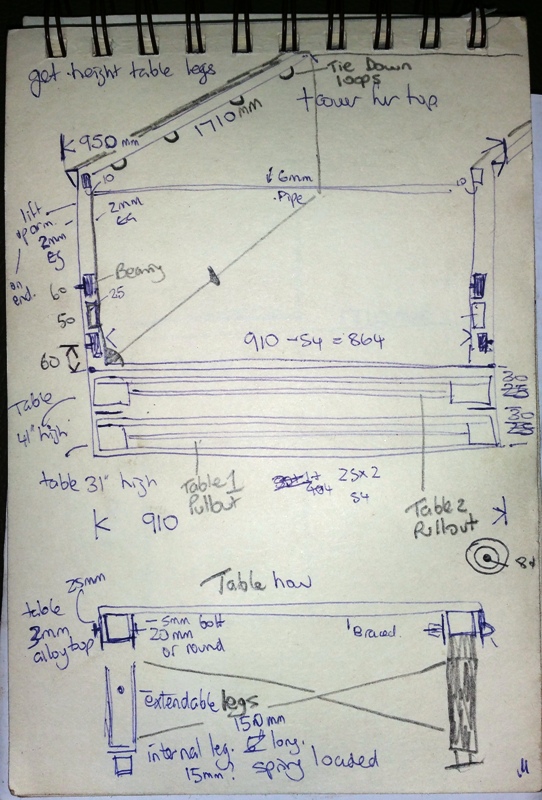 get height table legs
Tie Down
loops
+ cover for top
950 mm
1710mm
10
10
6mm
Pipe
lift
2mm
2mm
on
end.
Bearing
60
25
50
60
910 - 54 = 864
30
25
Table
30
25
41" high
table 31" high
Table 1
Pullout
25x2
54
Table 2
Pullout
910
84
25mm
Table
table
3mm
alloy top
5mm bolt
20mm
or round
Braced
extendable legs
150mm
internal leg. long.
15mm? spring loaded